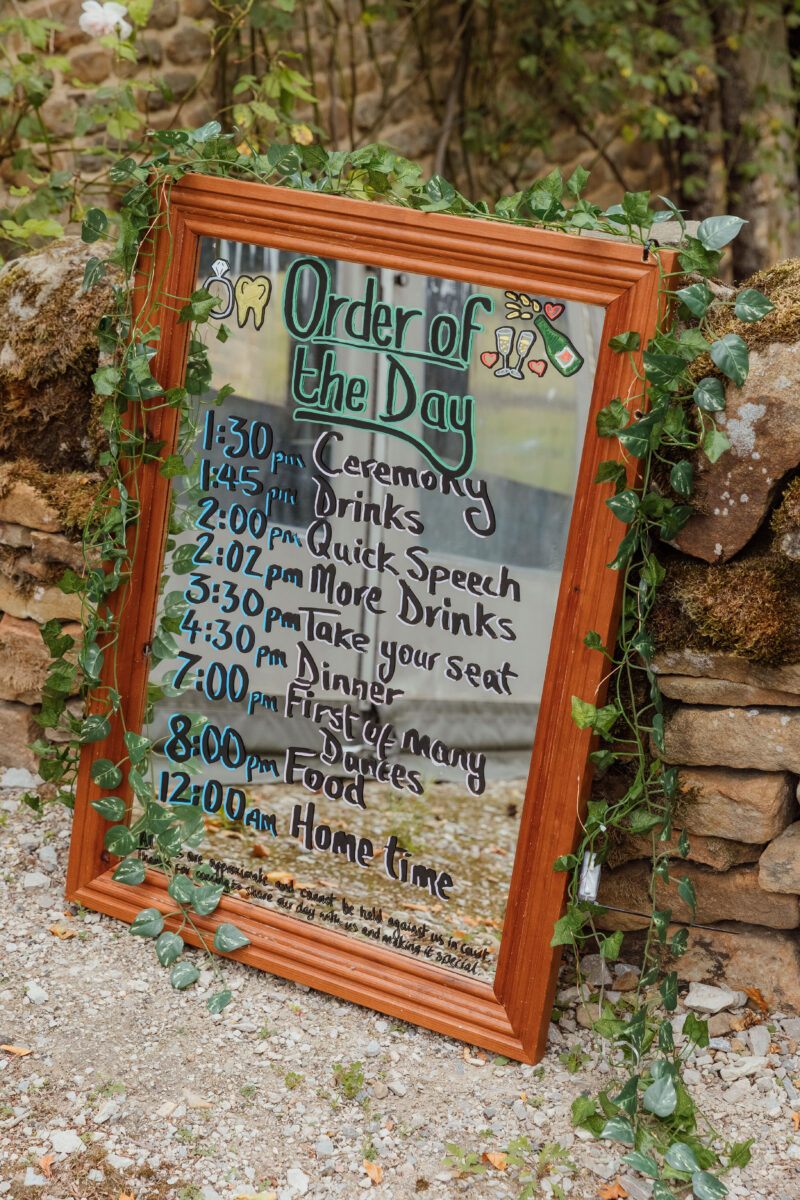 Order of
the Day
1:30pm Ceremony
1:45pm Drinks
2:00pm Quick Speech
2:02pm More Drinks
3:30pm Take your seat
4:30pm Dinner
7:00pm First of many
Dances
8:00pm Food
12:00AM Home time
are approximate and cannot be held against us in court
for coming to share our day with us and making it special